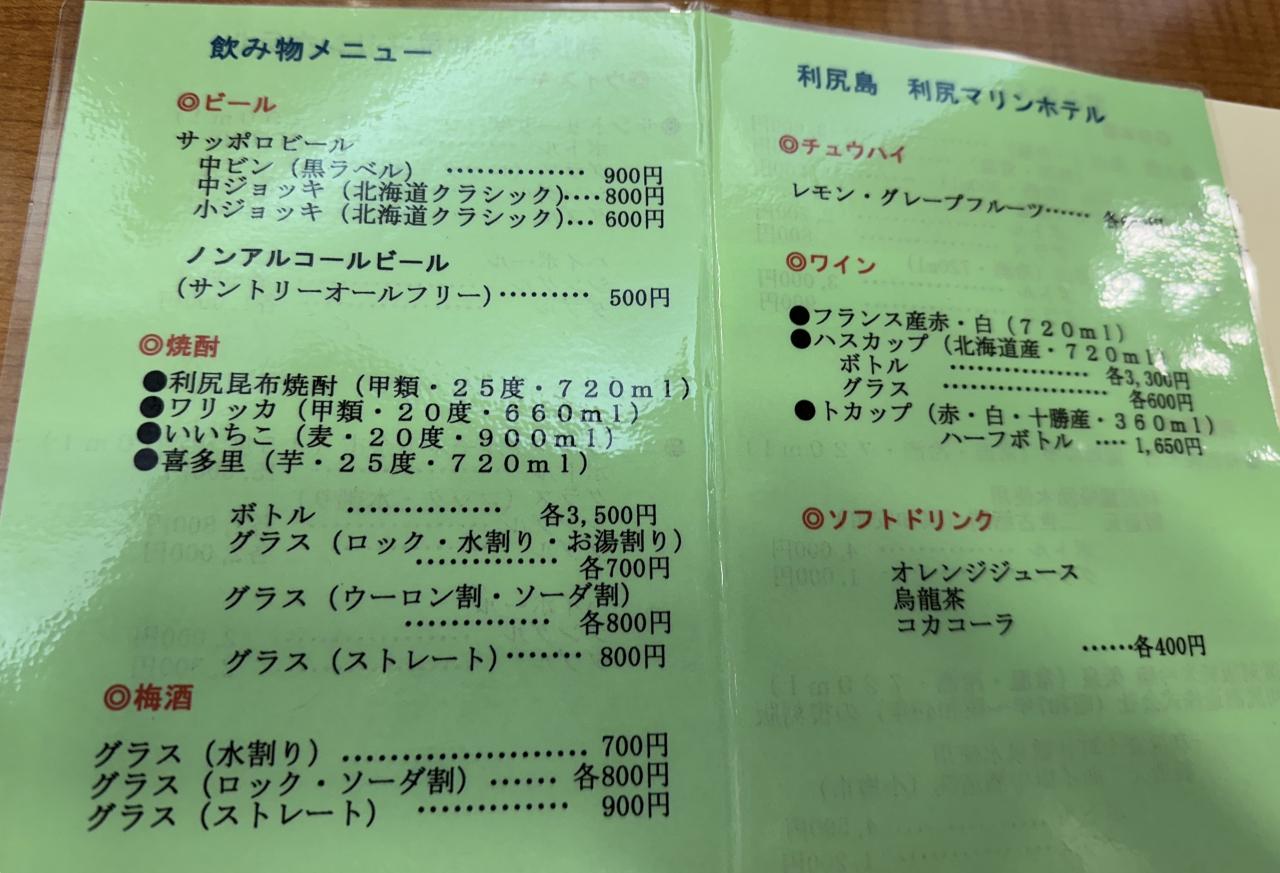 飲み物メニュー
◎ビール
サッポロビール
中ビン（黒ラベル） ‥‥‥‥‥‥‥ 900円
中ジョッキ（北海道クラシック）‥‥800円
小ジョッキ（北海道クラシック）‥‥ 600円
ノンアルコールビール
（サントリーオールフリー）‥‥‥‥‥ 500円
◎焼酎
●利尻昆布焼酎（甲類・２５度・７２０ｍｌ）
●ワリッカ（甲類・２０度・６６０ｍｌ）
●いいちこ（麦・２０度・９００ｍｌ）
●喜多里（芋・２５度・７２０ｍｌ）
ボトル ‥‥‥‥‥‥‥ 各3,500円
グラス（ロック・水割り・お湯割り）
‥‥‥‥‥‥‥ 各700円
グラス（ウーロン割・ソーダ割）
‥‥‥‥‥‥‥ 各800円
グラス（ストレート）‥‥‥‥ 800円
◎梅酒
グラス（水割り）‥‥‥‥‥‥‥‥‥‥‥ 700円
グラス（ロック・ソーダ割） ‥‥‥ 各800円
グラス（ストレート） ‥‥‥‥‥‥‥ 900円
利尻島 利尻マリンホテル
◎チュウハイ
レモン・グレープフルーツ‥‥‥ 各
◎ワイン
●フランス産赤・白（７２０ｍｌ）
●ハスカップ（北海道産・７２０ｍｌ）
ボトル ‥‥‥‥‥‥‥‥ 各3,300円
グラス ‥‥‥‥‥‥‥‥‥ 各600円
●トカップ（赤・白・十勝産・３６０ｍｌ）
ハーフボトル ‥‥ 1,650円
◎ソフトドリンク
オレンジジュース
烏龍茶
コカコーラ
‥‥‥各400円